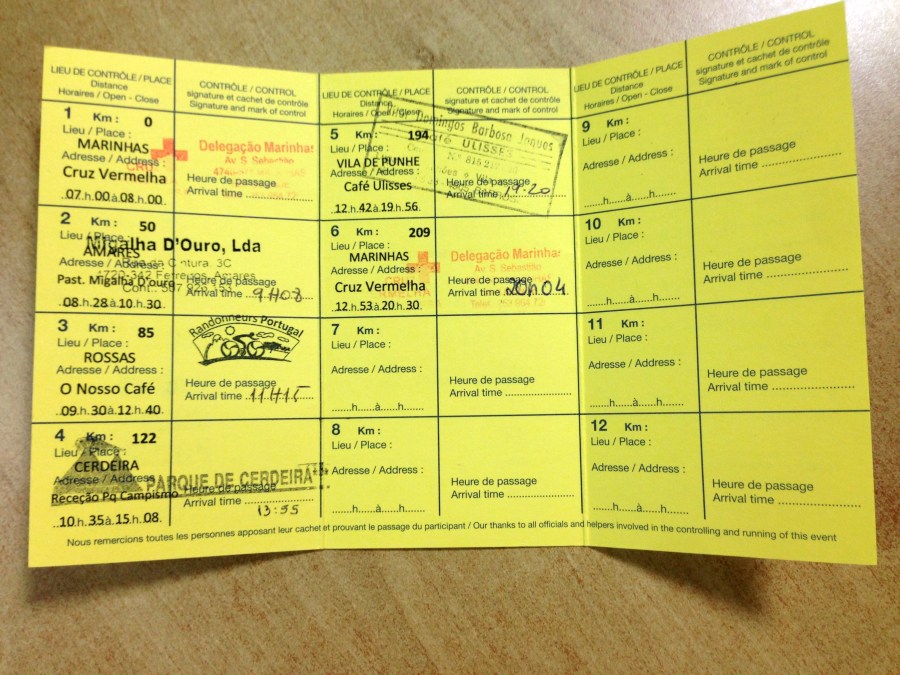 LIEU DE CONTRÔLE / PLACE
Distance
Horaires / Open - Close
CONTRÔLE / CONTROL
signature et cachet de contrôle
Signature and mark of control
1 Km : 0
Lieu / Place :
MARINHAS
Adresse / Address :
Cruz Vermelha
07.h.00à08.h.00
Delegação Marinhas
Av. S. Sebastião
Heure de passage
Arrival time
2 Km : 50
Lieu / Place :
AMARES
Adresse / Address :
Past. Migalha D'ouro
08.h.28à10.h.30
Migalha D'Ouro, Lda
3C
4720-342 Ferreiros, Amares
Heure de passage
Arrival time 9H08
3 Km : 85
Lieu / Place :
ROSSAS
Adresse / Address :
O Nosso Café
09.h.30à12.h.40
Randonneurs Portugal
Heure de passage
Arrival time 11H15
4 Km : 122
Lieu / Place :
CERDEIRA
Adresse / Address
Receção Pq Campismo
10.h.35à15.h.08
PARQUE DE CERDEIRA
Heure de passage
Arrival time
13:55
LIEU DE CONTRÔLE / PLACE
Distance
Horaires / Open - Close
CONTRÔLE / CONTROL
signature et cachet de contrôle
Signature and mark of control
5 Km : 194
Lieu / Place :
VILA DE PUNHE
Adresse / Address :
Café Ulisses
12.h.42à19.h.56
Domingos Barbosa Jaques
Café ULISSES
Heure de passage
Arrival time 19:20
6 Km : 209
Lieu / Place :
MARINHAS
Adresse / Address :
Cruz Vermelha
12.h.53à20.h.30
Delegação Marinhas
Av. S. Sebastião
Heure de passage
Arrival time 20h04
7 Km :
Lieu / Place :
Adresse / Address :
.......h......à......h......
Heure de passage
Arrival time
8 Km :
Lieu / Place :
Adresse / Address :
.......h......à......h......
Heure de passage
Arrival time
LIEU DE CONTRÔLE / PLACE
Distance
Horaires / Open - Close
CONTRÔLE / CONTROL
signature et cachet de contrôle
Signature and mark of control
9 Km :
Lieu / Place :
Adresse / Address :
.......h......à......h......
Heure de passage
Arrival time
10 Km :
Lieu / Place :
Adresse / Address :
.......h......à......h......
Heure de passage
Arrival time
11 Km :
Lieu / Place :
Adresse / Address :
.......h......à......h......
Heure de passage
Arrival time
12 Km :
Lieu / Place :
Adresse / Address :
.......h......à......h......
Heure de passage
Arrival time
Nous remercions toutes les personnes apposant leur cachet et prouvant le passage du participant / Our thanks to all officials and helpers involved in the controlling and running of this event